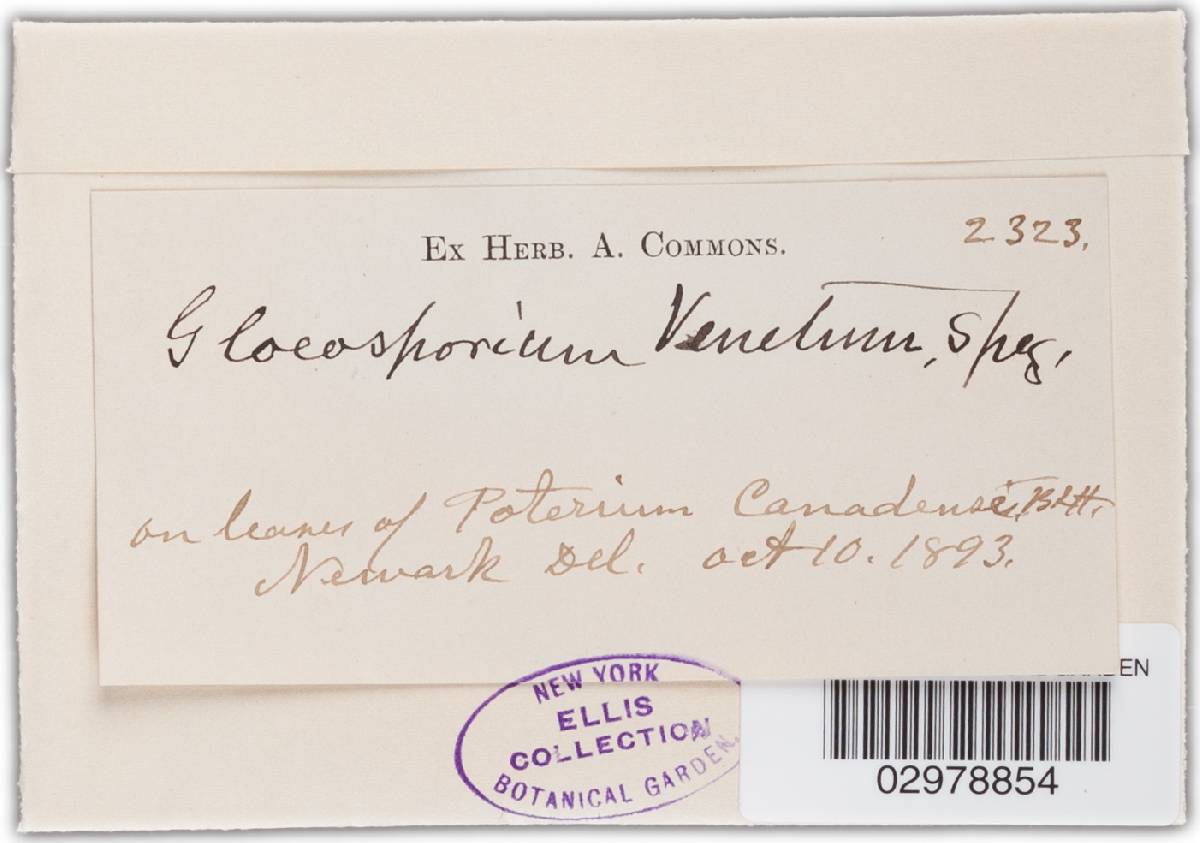 Ex Herb. A. Commons.
2323.
Gloeosporium Venetum, Speg,
on leaves of Poterium Canadense, B&H,
Newark Del. oct 10. 1893.
NEW YORK
ELLIS
COLLECTION
BOTANICAL GARDEN.
02978854